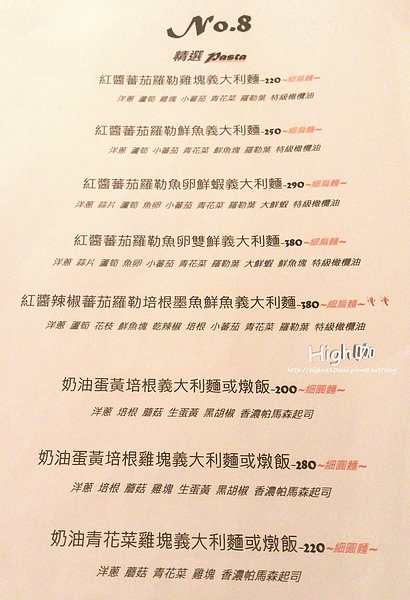 No.8
精選 Pasta
紅醬蕃茄羅勒雞塊義大利麵-220~細扁麵~
洋蔥 蘆筍 雞塊 小蕃茄 青花菜 羅勒葉 特級橄欖油
紅醬蕃茄羅勒鮮魚義大利麵-250~細扁麵~
洋蔥 蘆筍 小蕃茄 青花菜 鮮魚塊 羅勒葉 特級橄欖油
紅醬蕃茄羅勒魚卵鮮蝦義大利麵-290~細扁麵~
洋蔥 蒜片 蘆筍 魚卵 小蕃茄 青花菜 羅勒葉 大鮮蝦 特級橄欖油
紅醬蕃茄羅勒魚卵雙鮮義大利麵-380~細扁麵~
洋蔥 蒜片 蘆筍 魚卵 小蕃茄 青花菜 羅勒葉 大鮮蝦 鮮魚塊 特級橄欖油
紅醬辣椒蕃茄羅勒培根墨魚鮮魚義大利麵-380~細扁麵~
洋蔥 蘆筍 花枝 鮮魚塊 乾辣椒 培根 小蕃茄 青花菜 羅勒葉 特級橄欖油
High咖
奶油蛋黃培根義大利麵或燉飯-200~細圓麵~
洋蔥 培根 蘑菇 生蛋黃 黑胡椒 香濃帕馬森起司
奶油蛋黃培根雞塊義大利麵或燉飯-280~細圓麵~
洋蔥 培根 蘑菇 雞塊 生蛋黃 黑胡椒 香濃帕馬森起司
奶油青花菜雞塊義大利麵或燉飯-220~細圓麵~
洋蔥 蘑菇 青花菜 雞塊 香濃帕馬森起司